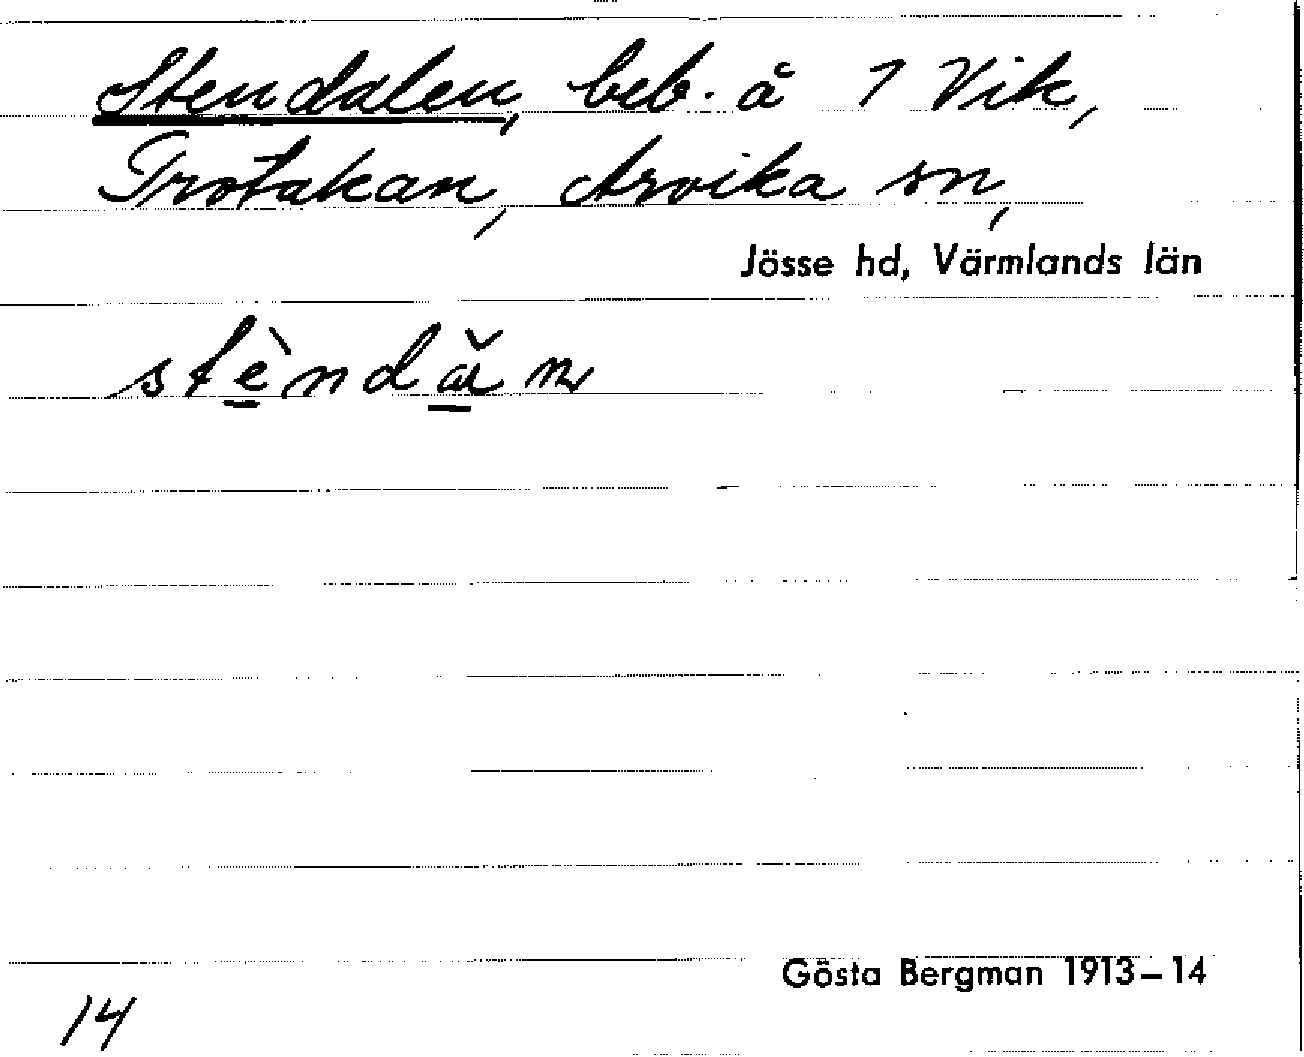 Stendalen, beb. å 1 Vik,
Trotakan, Arvika sn,
Jösse hd, Värmlands län
stè̱ndα̱̌n
Gösta Bergman 1913–14
14